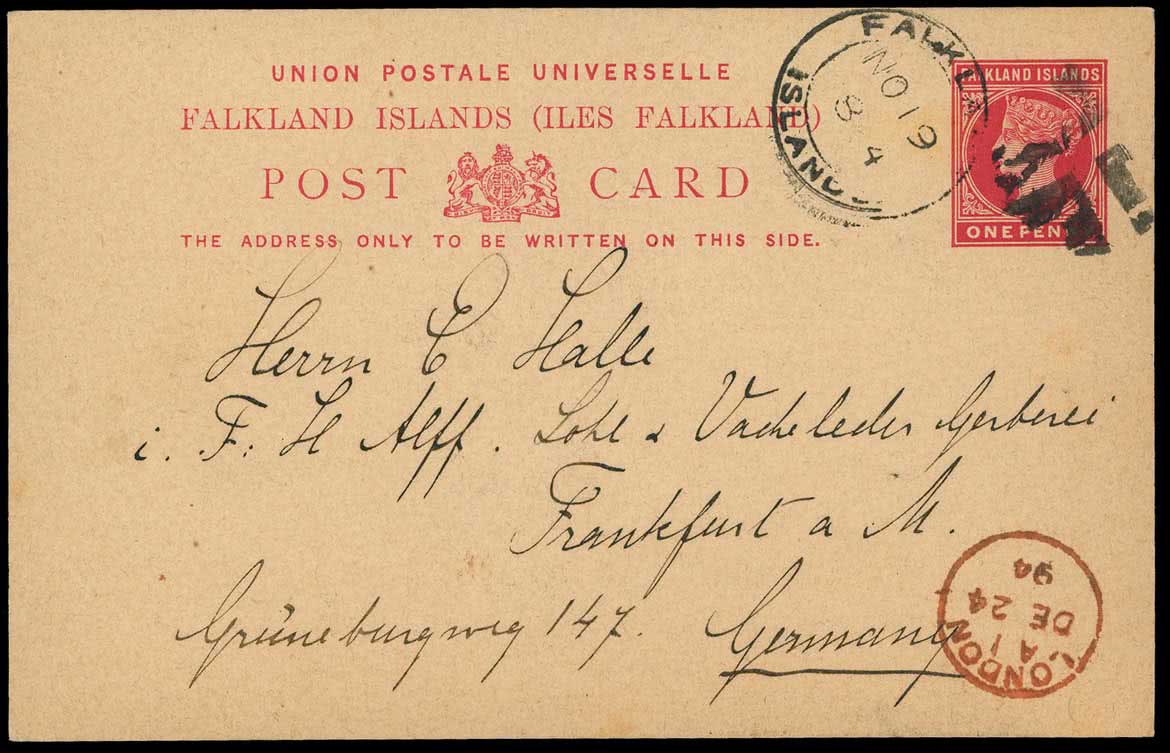 UNION POSTALE UNIVERSELLE
FALKLAND ISLANDS (ILES FALKLAND)
POST CARD
THE ADDRESS ONLY TO BE WRITTEN ON THIS SIDE.
FALKL ISLAND
NO 19
8 4
FALKLAND ISLANDS
ONE PEN
Herrn C Halle
i. F: H Alff. Lohl & Vacheleder Gerberei
Frankfurt a M.
Grüneburgweg 147. Germany
LONDON
A 1
DE 24
94